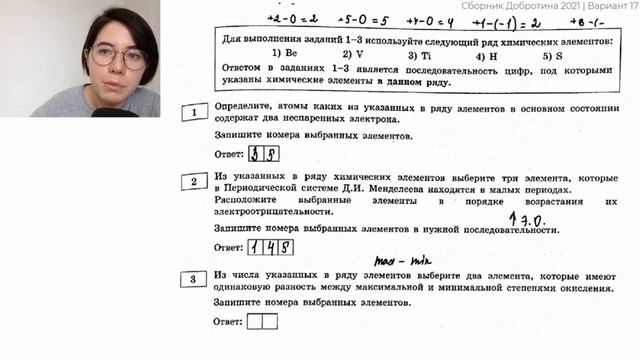 Сборник Добротина 2021 | Вариант 17
+2-0=2 +5-0=5 +4-0=4 +1-(-1)=2 +6-(-
Для выполнения заданий 1–3 используйте следующий ряд химических элементов:
1) Be 2) V 3) Ti 4) H 5) S
Ответом в заданиях 1–3 является последовательность цифр, под которыми
указаны химические элементы в данном ряду.
1 Определите, атомы каких из указанных в ряду элементов в основном состоянии
содержат два неспаренных электрона.
Запишите номера выбранных элементов.
Ответ: 3 5
2 Из указанных в ряду химических элементов выберите три элемента, которые
в Периодической системе Д.И. Менделеева находятся в малых периодах.
Расположите выбранные элементы в порядке возрастания их
электроотрицательности.
↑ Э.О.
Запишите номера выбранных элементов в нужной последовательности.
Ответ: 1 4 5
max – min
3 Из числа указанных в ряду элементов выберите два элемента, которые имеют
одинаковую разность между максимальной и минимальной степенями окисления.
Запишите номера выбранных элементов.
Ответ: